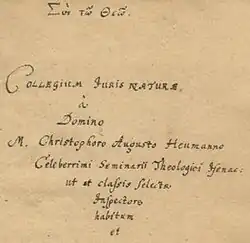 Σὺν τῷ Θεῷ.
COLLEGIUM JURIS NATURÆ.
à
Domino
M. Christophoro Augusto Heumanno
Celeberrimi Seminarii Theologici Isenac:
ut et classis selectæ
Inspectore
habitum
et